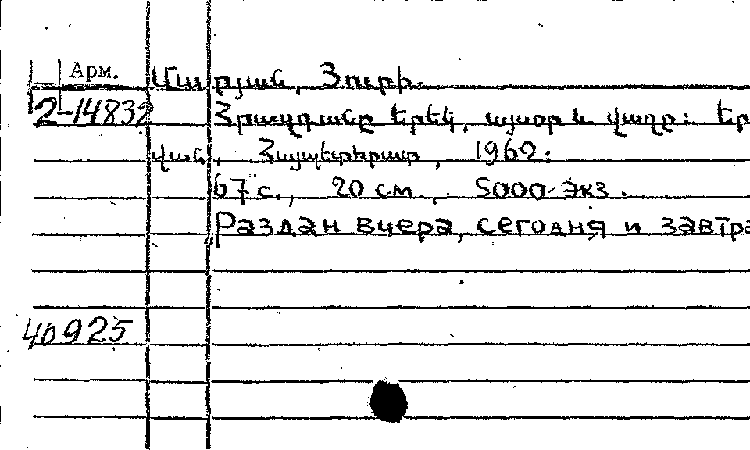 Арм.
Մարյան, Յուրի.
2-14832
Հրազդանը երեկ, այսօր և վաղը: Եր
վան, Հայպետհրատ, 1962:
67 с., 20 см., 5000 экз.
Раздан вчера, сегодня и завтра
40925